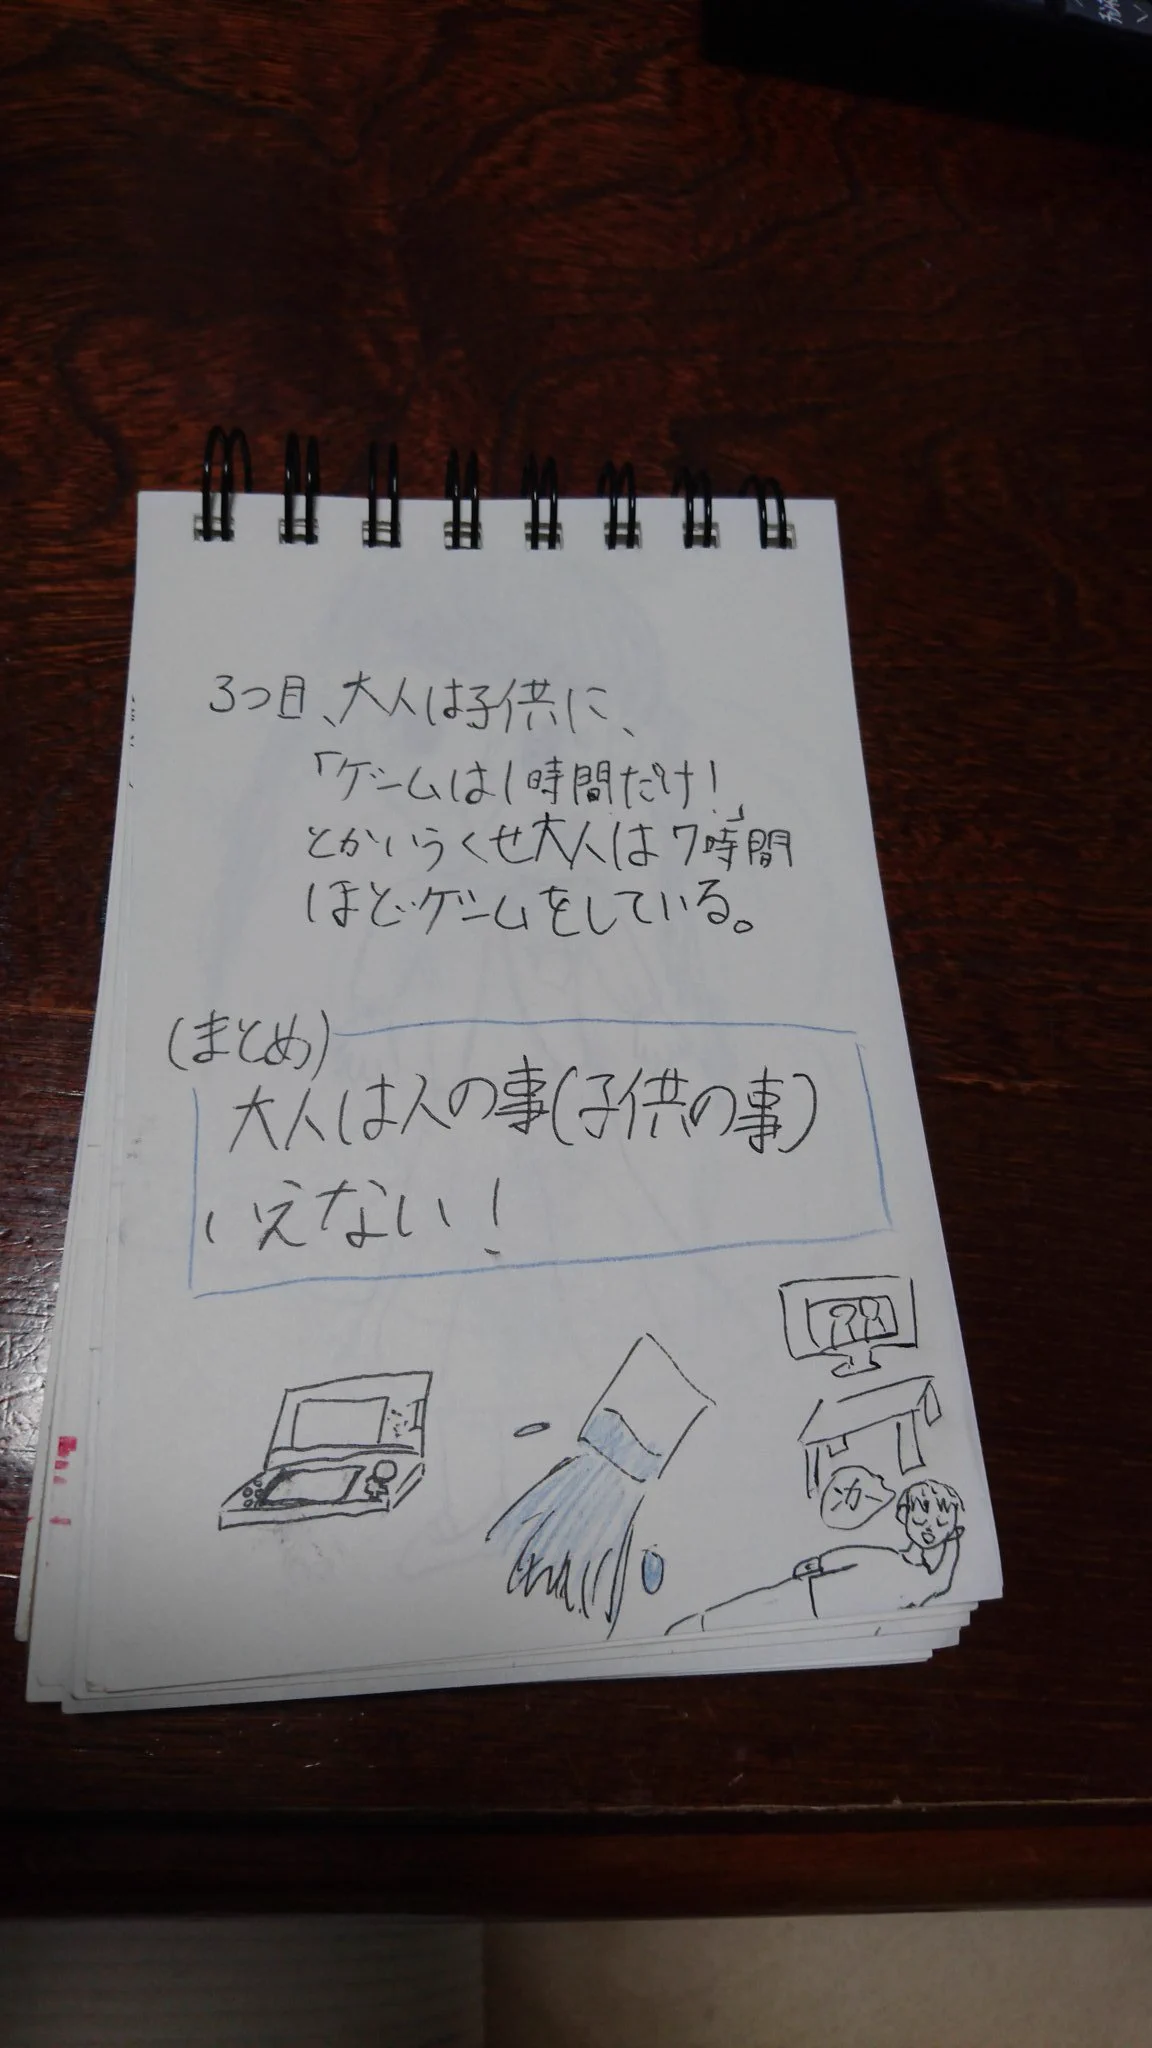 3つ目、大人は子供に、
「ゲームは1時間だけ！」
とかいうくせ大人は7時間
ほどゲームをしている。
(まとめ)
大人は人の事(子供の事)
いえない！